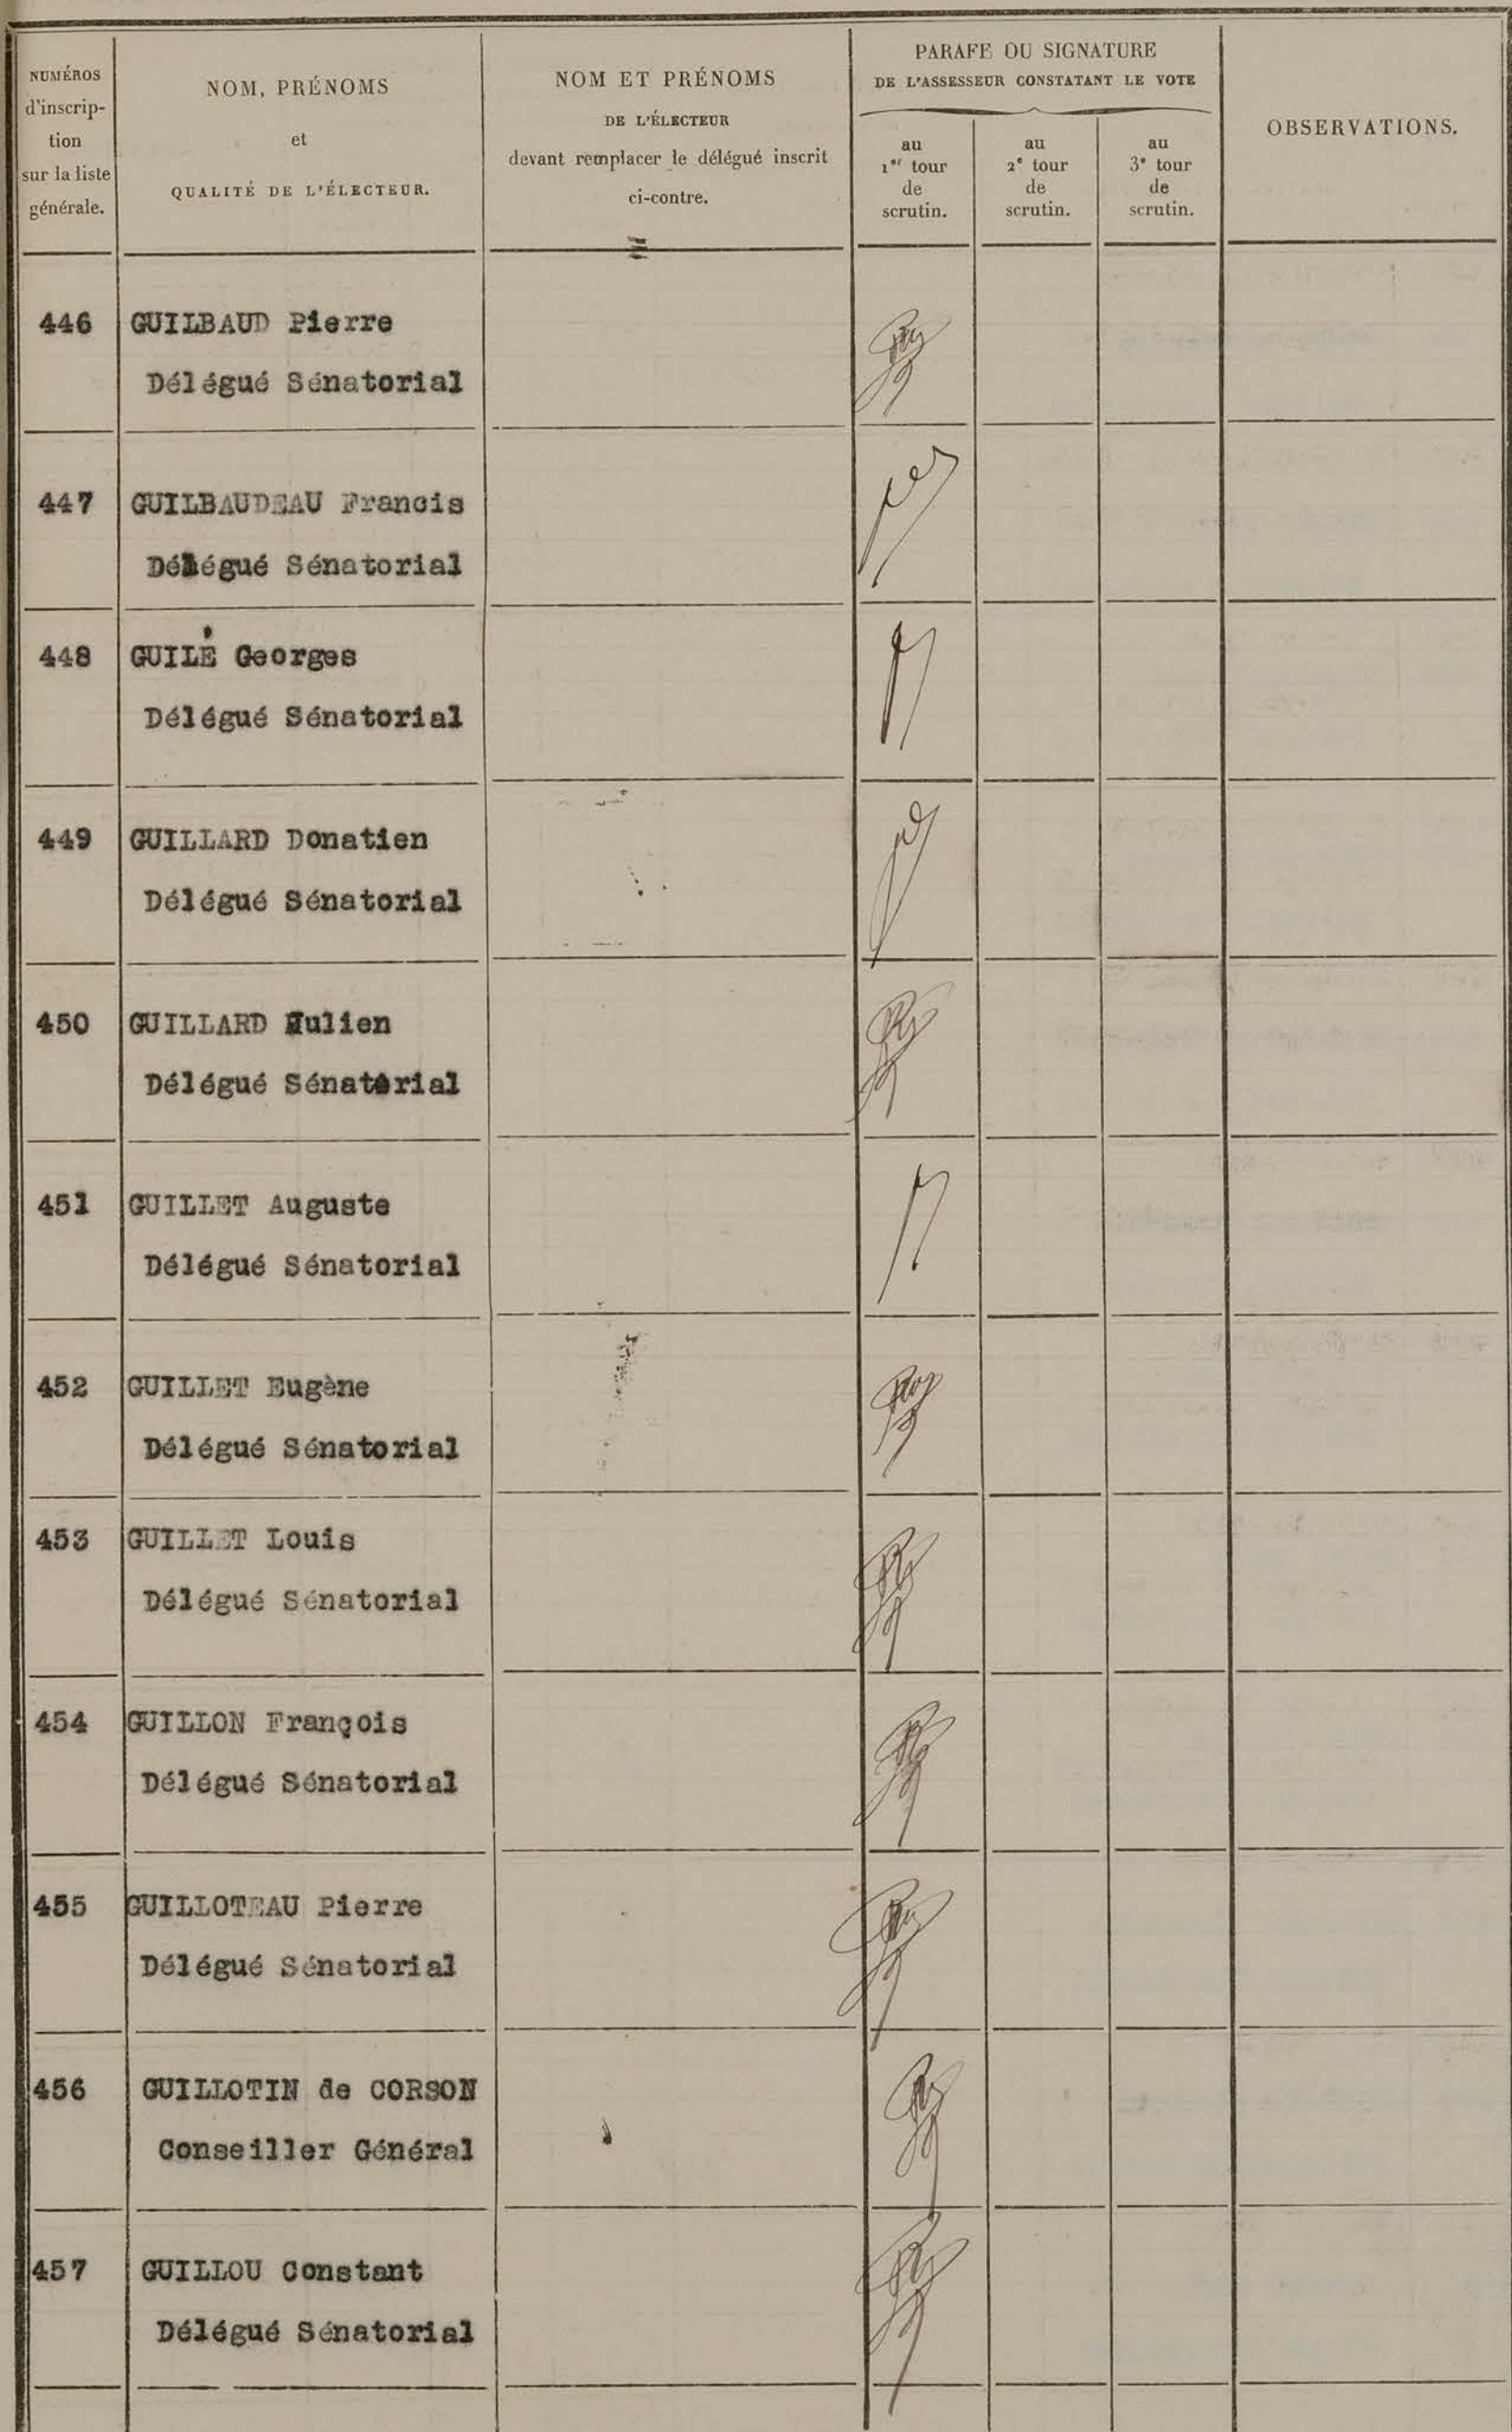 NUMÉROS
d'inscrip-
tion
sur la liste
générale.
NOM, PRÉNOMS
et
QUALITÉ DE L'ÉLECTEUR.
NOM ET PRÉNOMS
DE L'ÉLECTEUR
devant remplacer le délégué inscrit
ci-contre.
PARAFE OU SIGNATURE
DE L'ASSESSEUR CONSTATANT LE VOTE
au
1er tour
de
scrutin.
au
2e tour
de
scrutin.
au
3e tour
de
scrutin.
OBSERVATIONS.
446 GUILBAUD Pierre
Délégué Sénatorial
447 GUILBAUDEAU Francis
Délégué Sénatorial
448 GUILÉ Georges
Délégué Sénatorial
449 GUILLARD Donatien
Délégué Sénatorial
450 GUILLARD Julien
Délégué Sénatorial
451 GUILLET Auguste
Délégué Sénatorial
452 GUILLET Eugène
Délégué Sénatorial
453 GUILLET Louis
Délégué Sénatorial
454 GUILLON François
Délégué Sénatorial
455 GUILLOTEAU Pierre
Délégué Sénatorial
456 GUILLOTIN de CORSON
Conseiller Général
457 GUILLOU Constant
Délégué Sénatorial